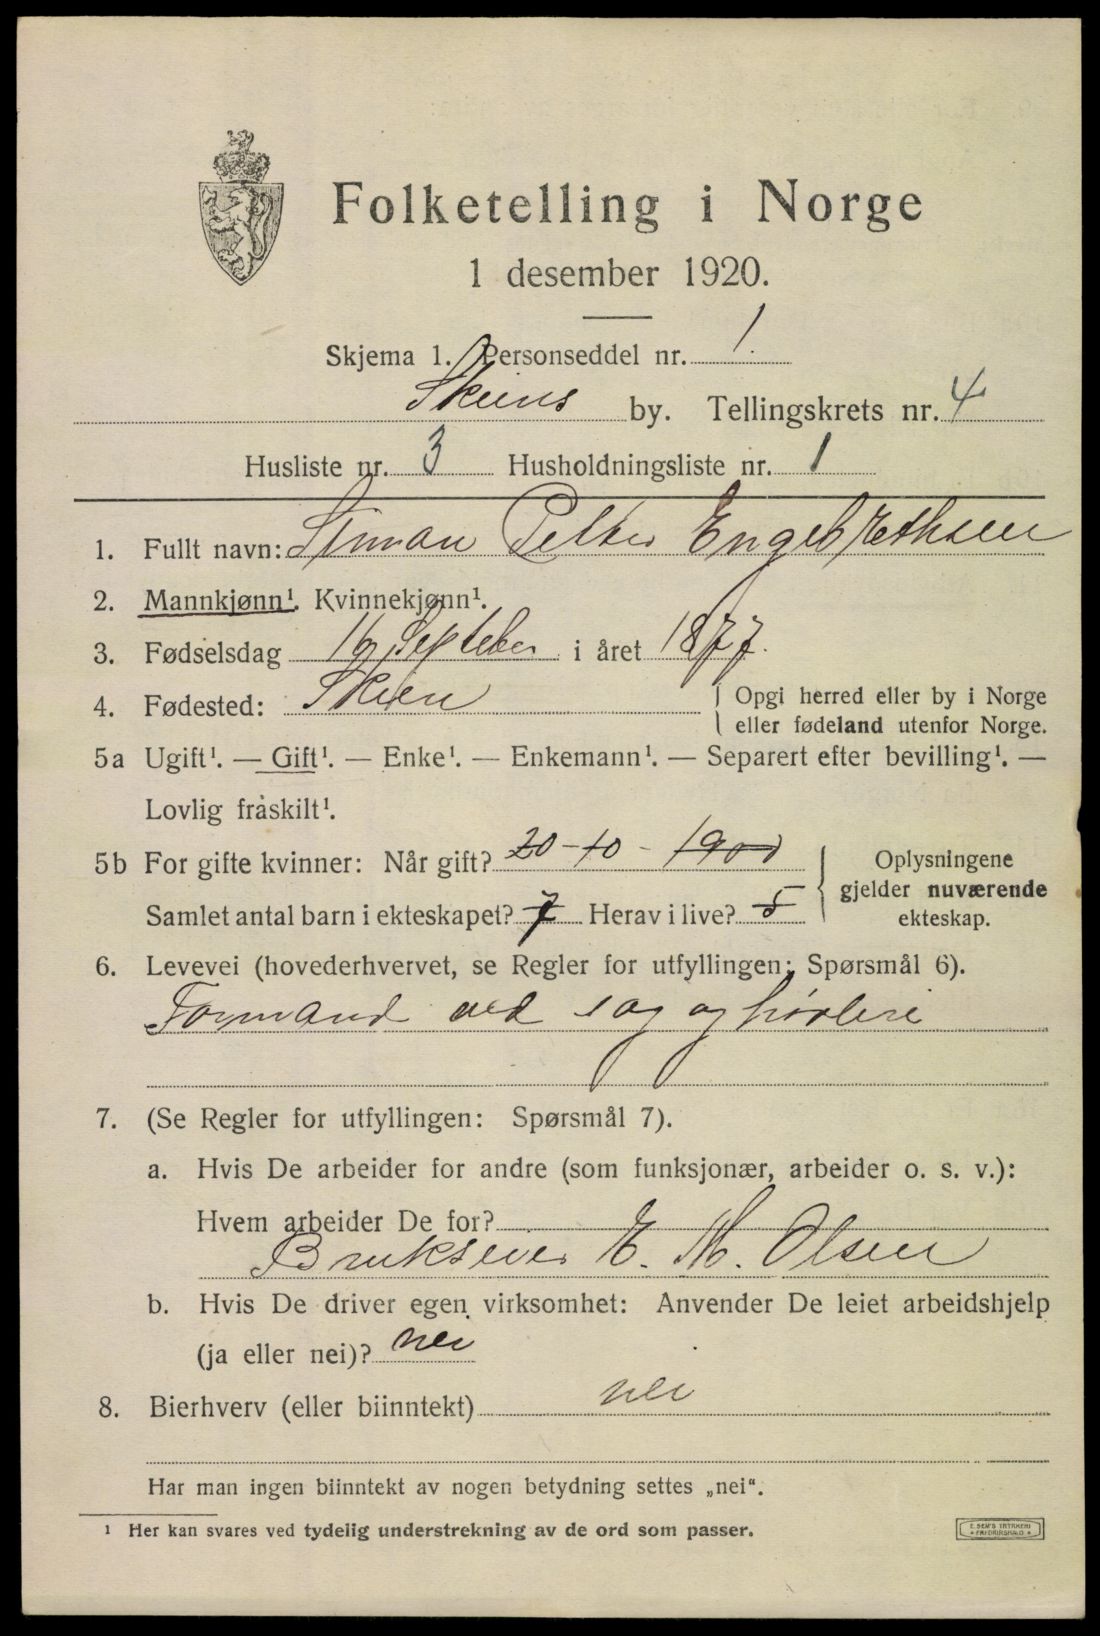 Folketelling i Norge
1 desember 1920.
Skjema 1. Personseddel nr. 1.
Skiens by. Tellingskrets nr. 4
Husliste nr. 3 Husholdningsliste nr. 1
1. Fullt navn: Simon Petter Engebrethsen
2. Mannkjønn¹. Kvinnekjønn¹.
3. Fødselsdag 16 September i året 1877.
4. Fødested: Skien
Opgi herred eller by i Norge
eller fødeland utenfor Norge.
5a Ugift¹. — Gift¹. — Enke¹. — Enkemann¹. — Separert efter bevilling¹. —
Lovlig fraskilt¹.
5b For gifte kvinner: Når gift? 20-10-1900
Samlet antal barn i ekteskapet? 7 Herav i live? 5
Oplysningene
gjelder nuværende
ekteskap.
6. Levevei (hovederhvervet, se Regler for utfyllingen; Spørsmål 6).
Formand ved sag og høvleri
7. (Se Regler for utfyllingen: Spørsmål 7).
a. Hvis De arbeider for andre (som funksjonær, arbeider o. s. v.):
Hvem arbeider De for?
Brukseier E. M. Olsen
b. Hvis De driver egen virksomhet: Anvender De leiet arbeidshjelp
(ja eller nei)? nei
8. Bierhverv (eller biinntekt) nei
Har man ingen biinntekt av nogen betydning settes „nei“.
¹ Her kan svares ved tydelig understrekning av de ord som passer.